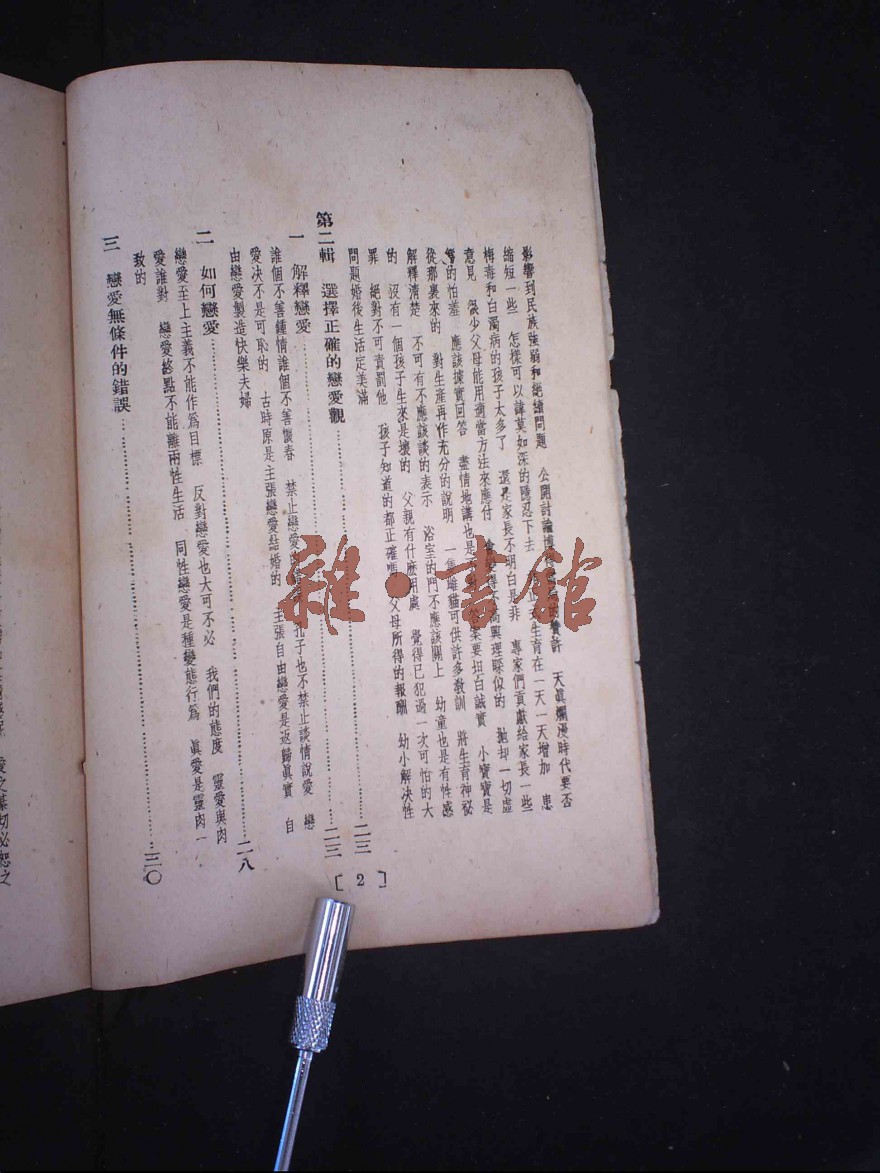 影響到民族強弱和絕續問題　公開討論博得　天眞爛漫時代要否
縮短一些　怎樣可以諱莫如深的隱忍下去　生育在一天一天增加　患
梅毒和白濁病的孩子太多了　還是家長不明白是非　專家們貢獻給家長一些
意見　很少父母能用適當方法來應付　高興理睬似的　拋却一切虛
的怕羞　應該據實回答　盡情地講也是　要坦白誠實　小寶寶是
從那裏來的　對生產再作充分的說明　一隻雌貓可供許多敎訓　將生育神祕
解釋淸楚　不可有不應該談的表示　浴室的門不應該關上　幼童也是有性感
的　沒有一個孩子生來是壞的　父親有什麽用處　覺得已犯過一次可怕的大
罪　絕對不可責罰他　孩子知道的都正確嗎　父母所得的報酬　幼小解決性
問題婚後生活定美滿
第二輯　選擇正確的戀愛觀……二三
一　解釋戀愛……二三
誰個不善鍾情誰個不善懷春　禁止戀愛　孔子也不禁止談情說愛　戀
愛決不是可恥的　古時原是主張戀愛結婚的　主張自由戀愛是返歸眞實　自
由戀愛製造快樂夫婦
二　如何戀愛……二八
戀愛至上主義不能作爲目標　反對戀愛也大可不必　我們的態度　靈愛與肉
愛誰對　戀愛終點不能離兩性生活　同性戀愛是種變態行爲　眞愛是靈肉一
致的
三　戀愛無條件的錯誤……三〇
[2]
雜·書館
愛之基切必恕之